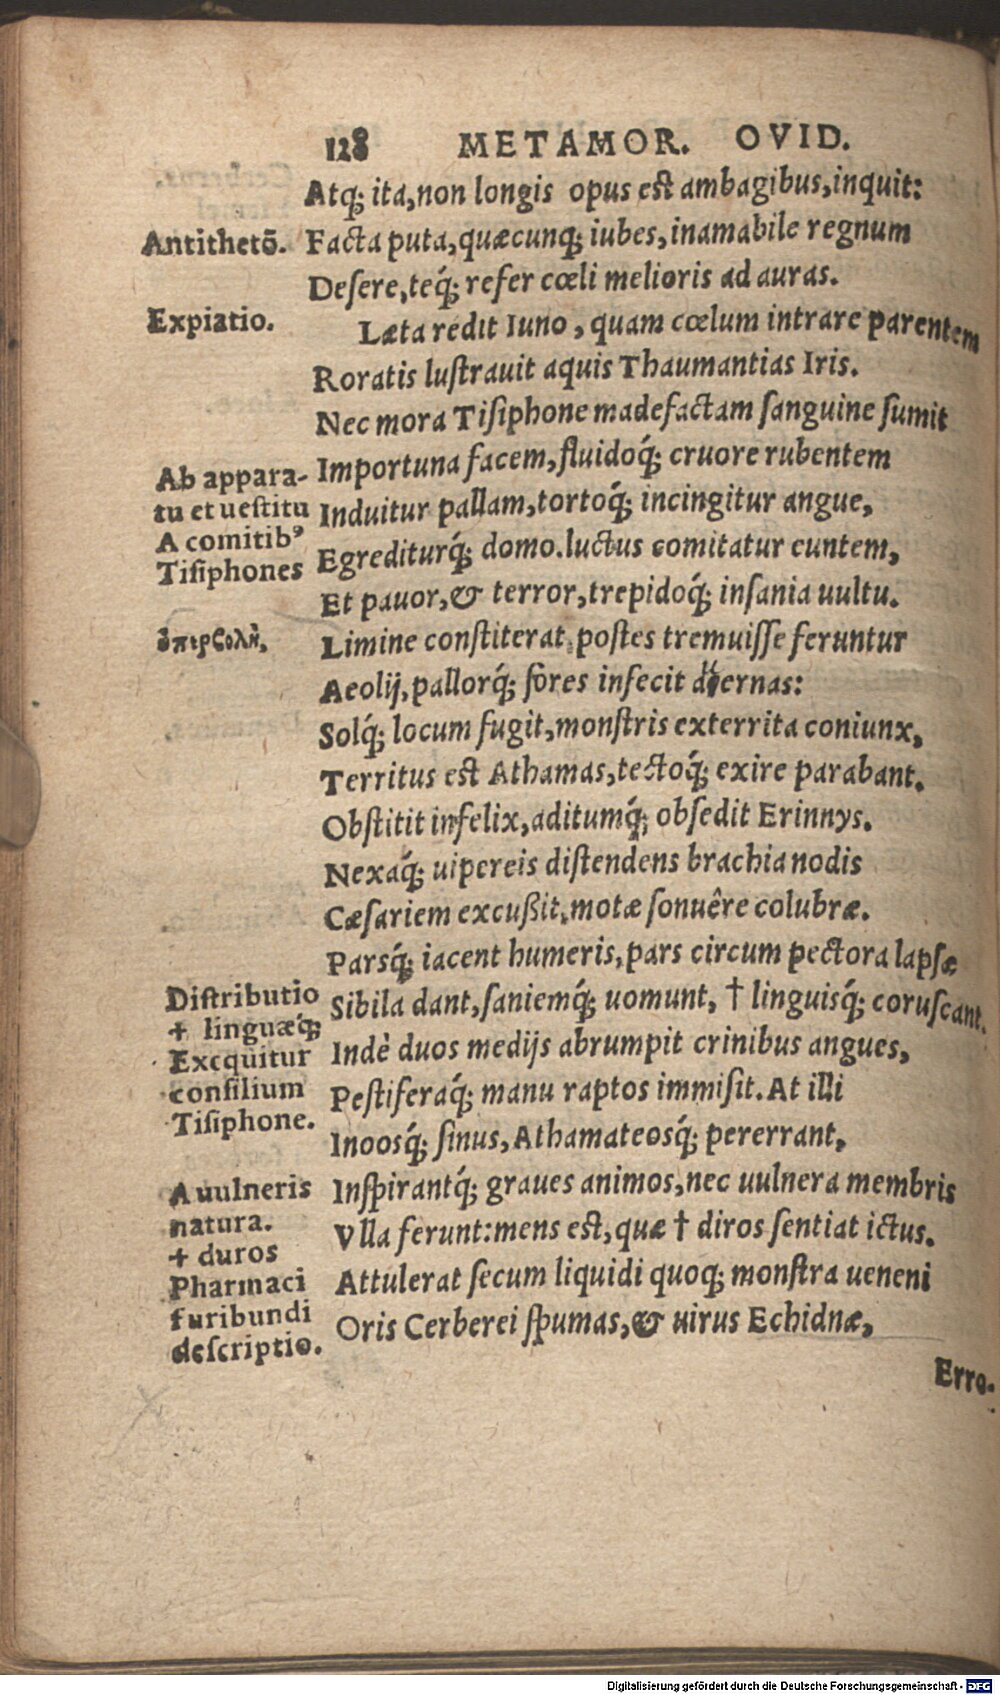 128 METAMOR. OVID.
Atq; ita, non longis opus est ambagibus, inquit:
Antithetō.
Facta puta, quæcunq; iubes, inamabile regnum
Desere, teq́; refer cœli melioris ad auras.
Expiatio.
Læta redit Iuno, quam cœlum intrare parentem
Roratis lustrauit aquis Thaumantias Iris.
Nec mora Tisiphone madefactam sanguine sumit
Importuna facem, fluidoq́; cruore rubentem
Ab appara-
tu et uestitu
Induitur pallam, tortoq́; incingitur angue,
A comitibꝰ
Tisiphones
Egrediturq́; domo. luctus comitatur euntem,
Et pauor, & terror, trepidoq́; insania uultu.
ὑπερβολὴ.
Limine constiterat, postes tremuisse feruntur
Aeolij, pallorq́; fores infecit ernas:
Solq́; locum fugit, monstris exterrita coniunx,
Territus est Athamas, tectoq́; exire parabant.
Obstitit infelix, aditumq́; obsedit Erinnys.
Nexaq́; uipereis distendens brachia nodis
Cæsariem excußit, motæ sonuêre colubræ.
Parsq́; iacent humeris, pars circum pectora lapsæ
Distributio
Sibila dant, saniemq́; uomunt, † linguisq́; coruscant.
+ linguæq́;
Excquitur
consilium
Tisiphone.
Indè duos medijs abrumpit crinibus angues,
Pestiferaq́; manu raptos immisit. At illi
Inoosq́; sinus, Athamateosq́; pererrant,
A uulneris
natura.
Inspirantq́; graues animos, nec uulnera membris
Vlla ferunt: mens est, quæ † diros sentiat ictus.
+ duros
Pharmaci
furibundi
descriptio.
Attulerat secum liquidi quoq; monstra ueneni
Oris Cerberei spumas, & uirus Echidnæ,
Erro-
Digitalisierung gefördert durch die Deutsche Forschungsgemeinschaft - DFG